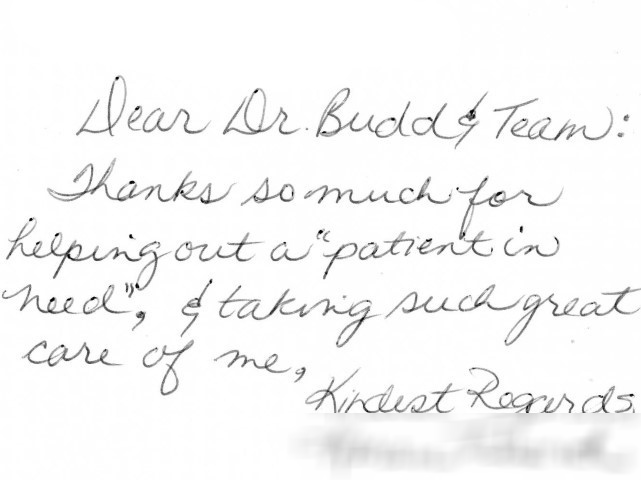 Dear Dr. Budd & Team:
Thanks so much for
helping out a "patient in
need", & taking such great
care of me,
Kindest Regards,